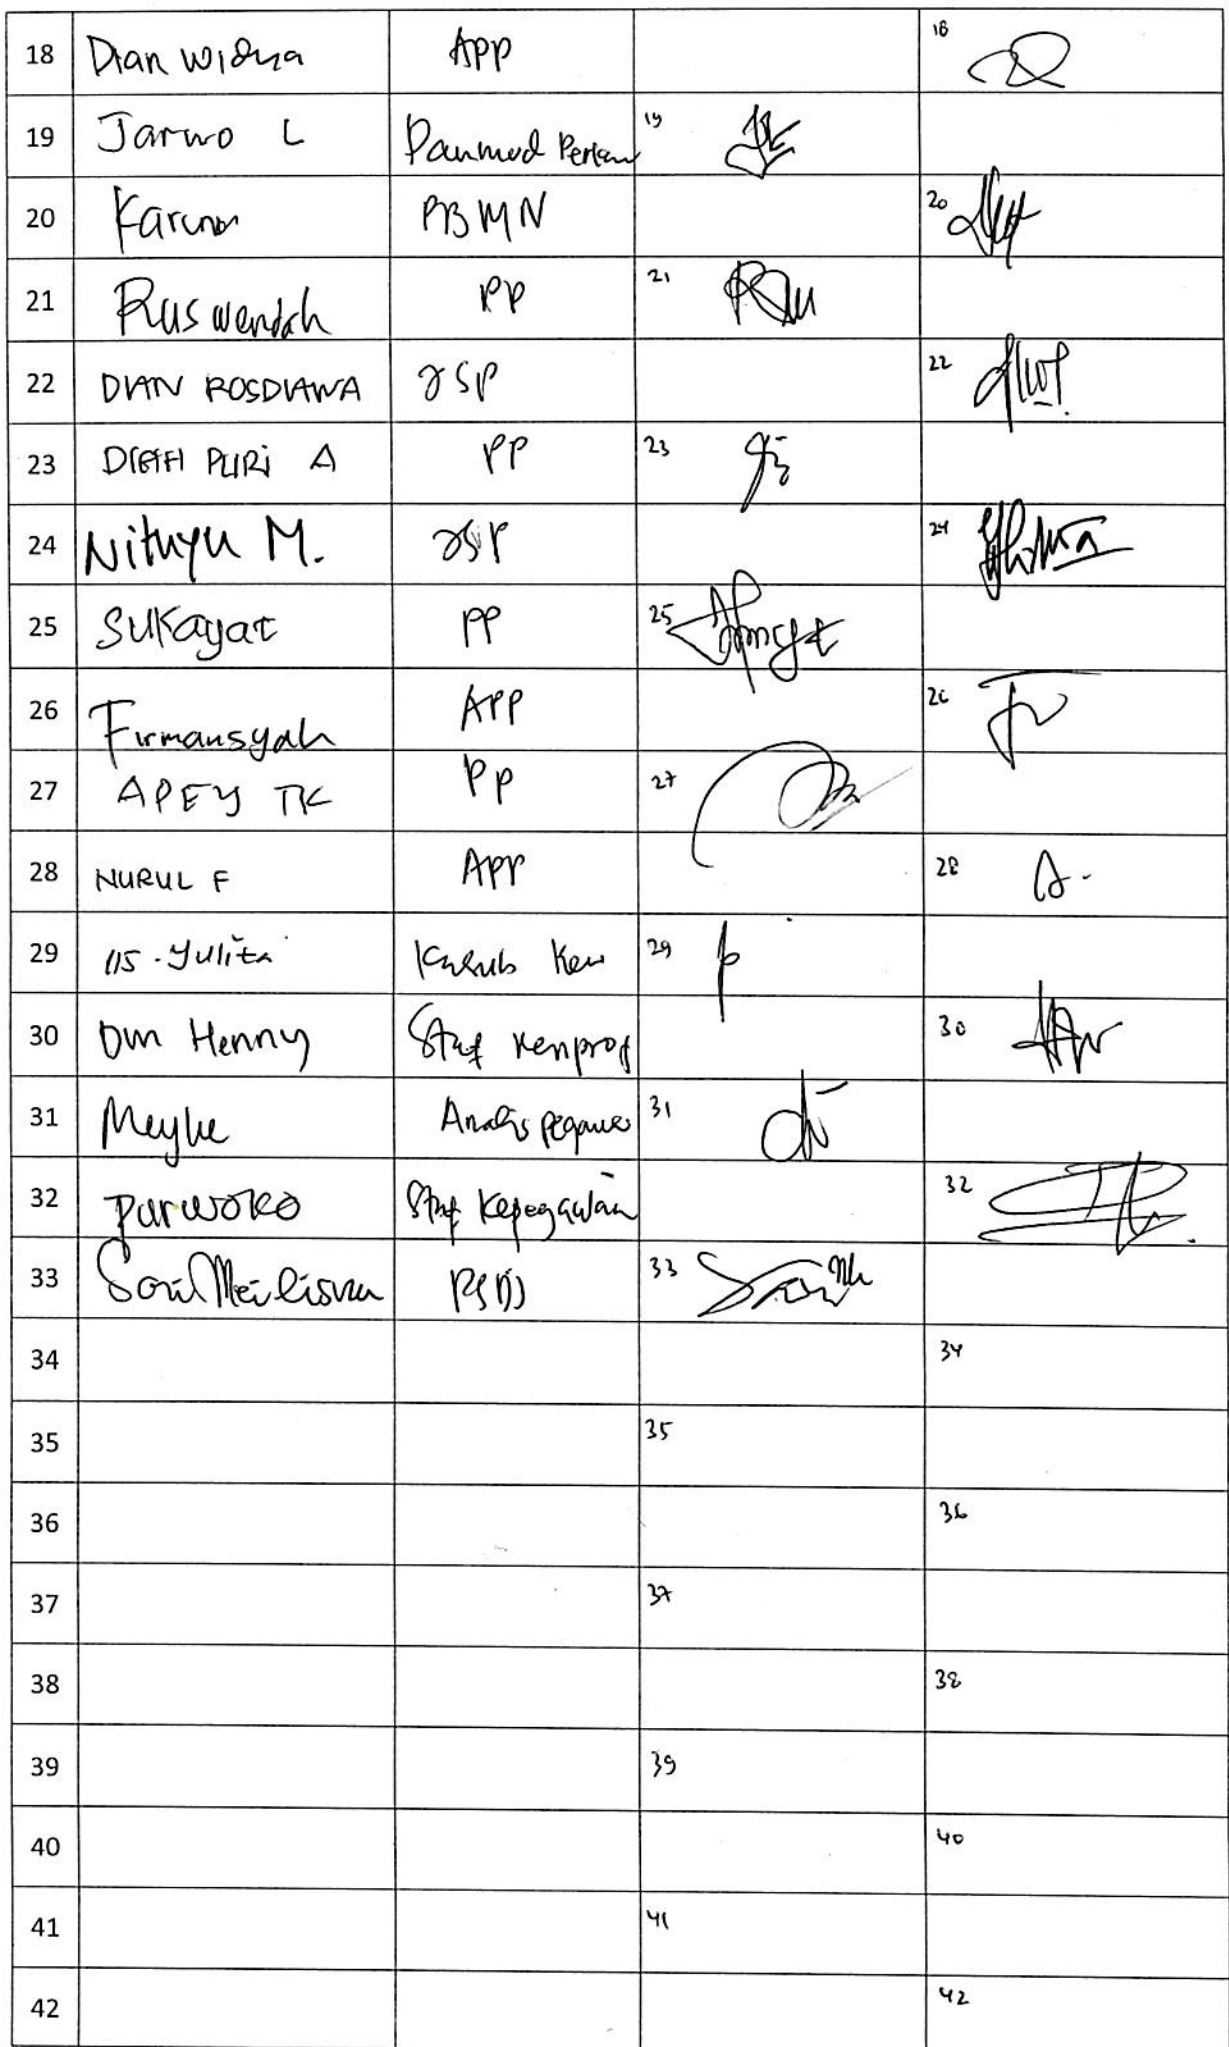 18 Dian Widya APP 18
19 Jarwo L Panmud Perdan 19
20 Karuna PBMN 20
21 Ruswendah PP 21
22 DIAN ROSDIANA JSP 22
23 DIAH PURI A PP 23
24 Nithyu M. JSP 24
25 Sukayat PP 25
26 Firmansyah APP 26
27 APEY TK PP 27
28 NURUL F APP 28
29 IIS. Yulita Kasub Keu 29
30 Henny Staf 30
31 Meyke Analis pegawai 31
32 Purwoko Staf Kepegawaian 32
33 Sori Meilisna 33
34 34
35 35
36 36
37 37
38 38
39 39
40 40
41 41
42 42